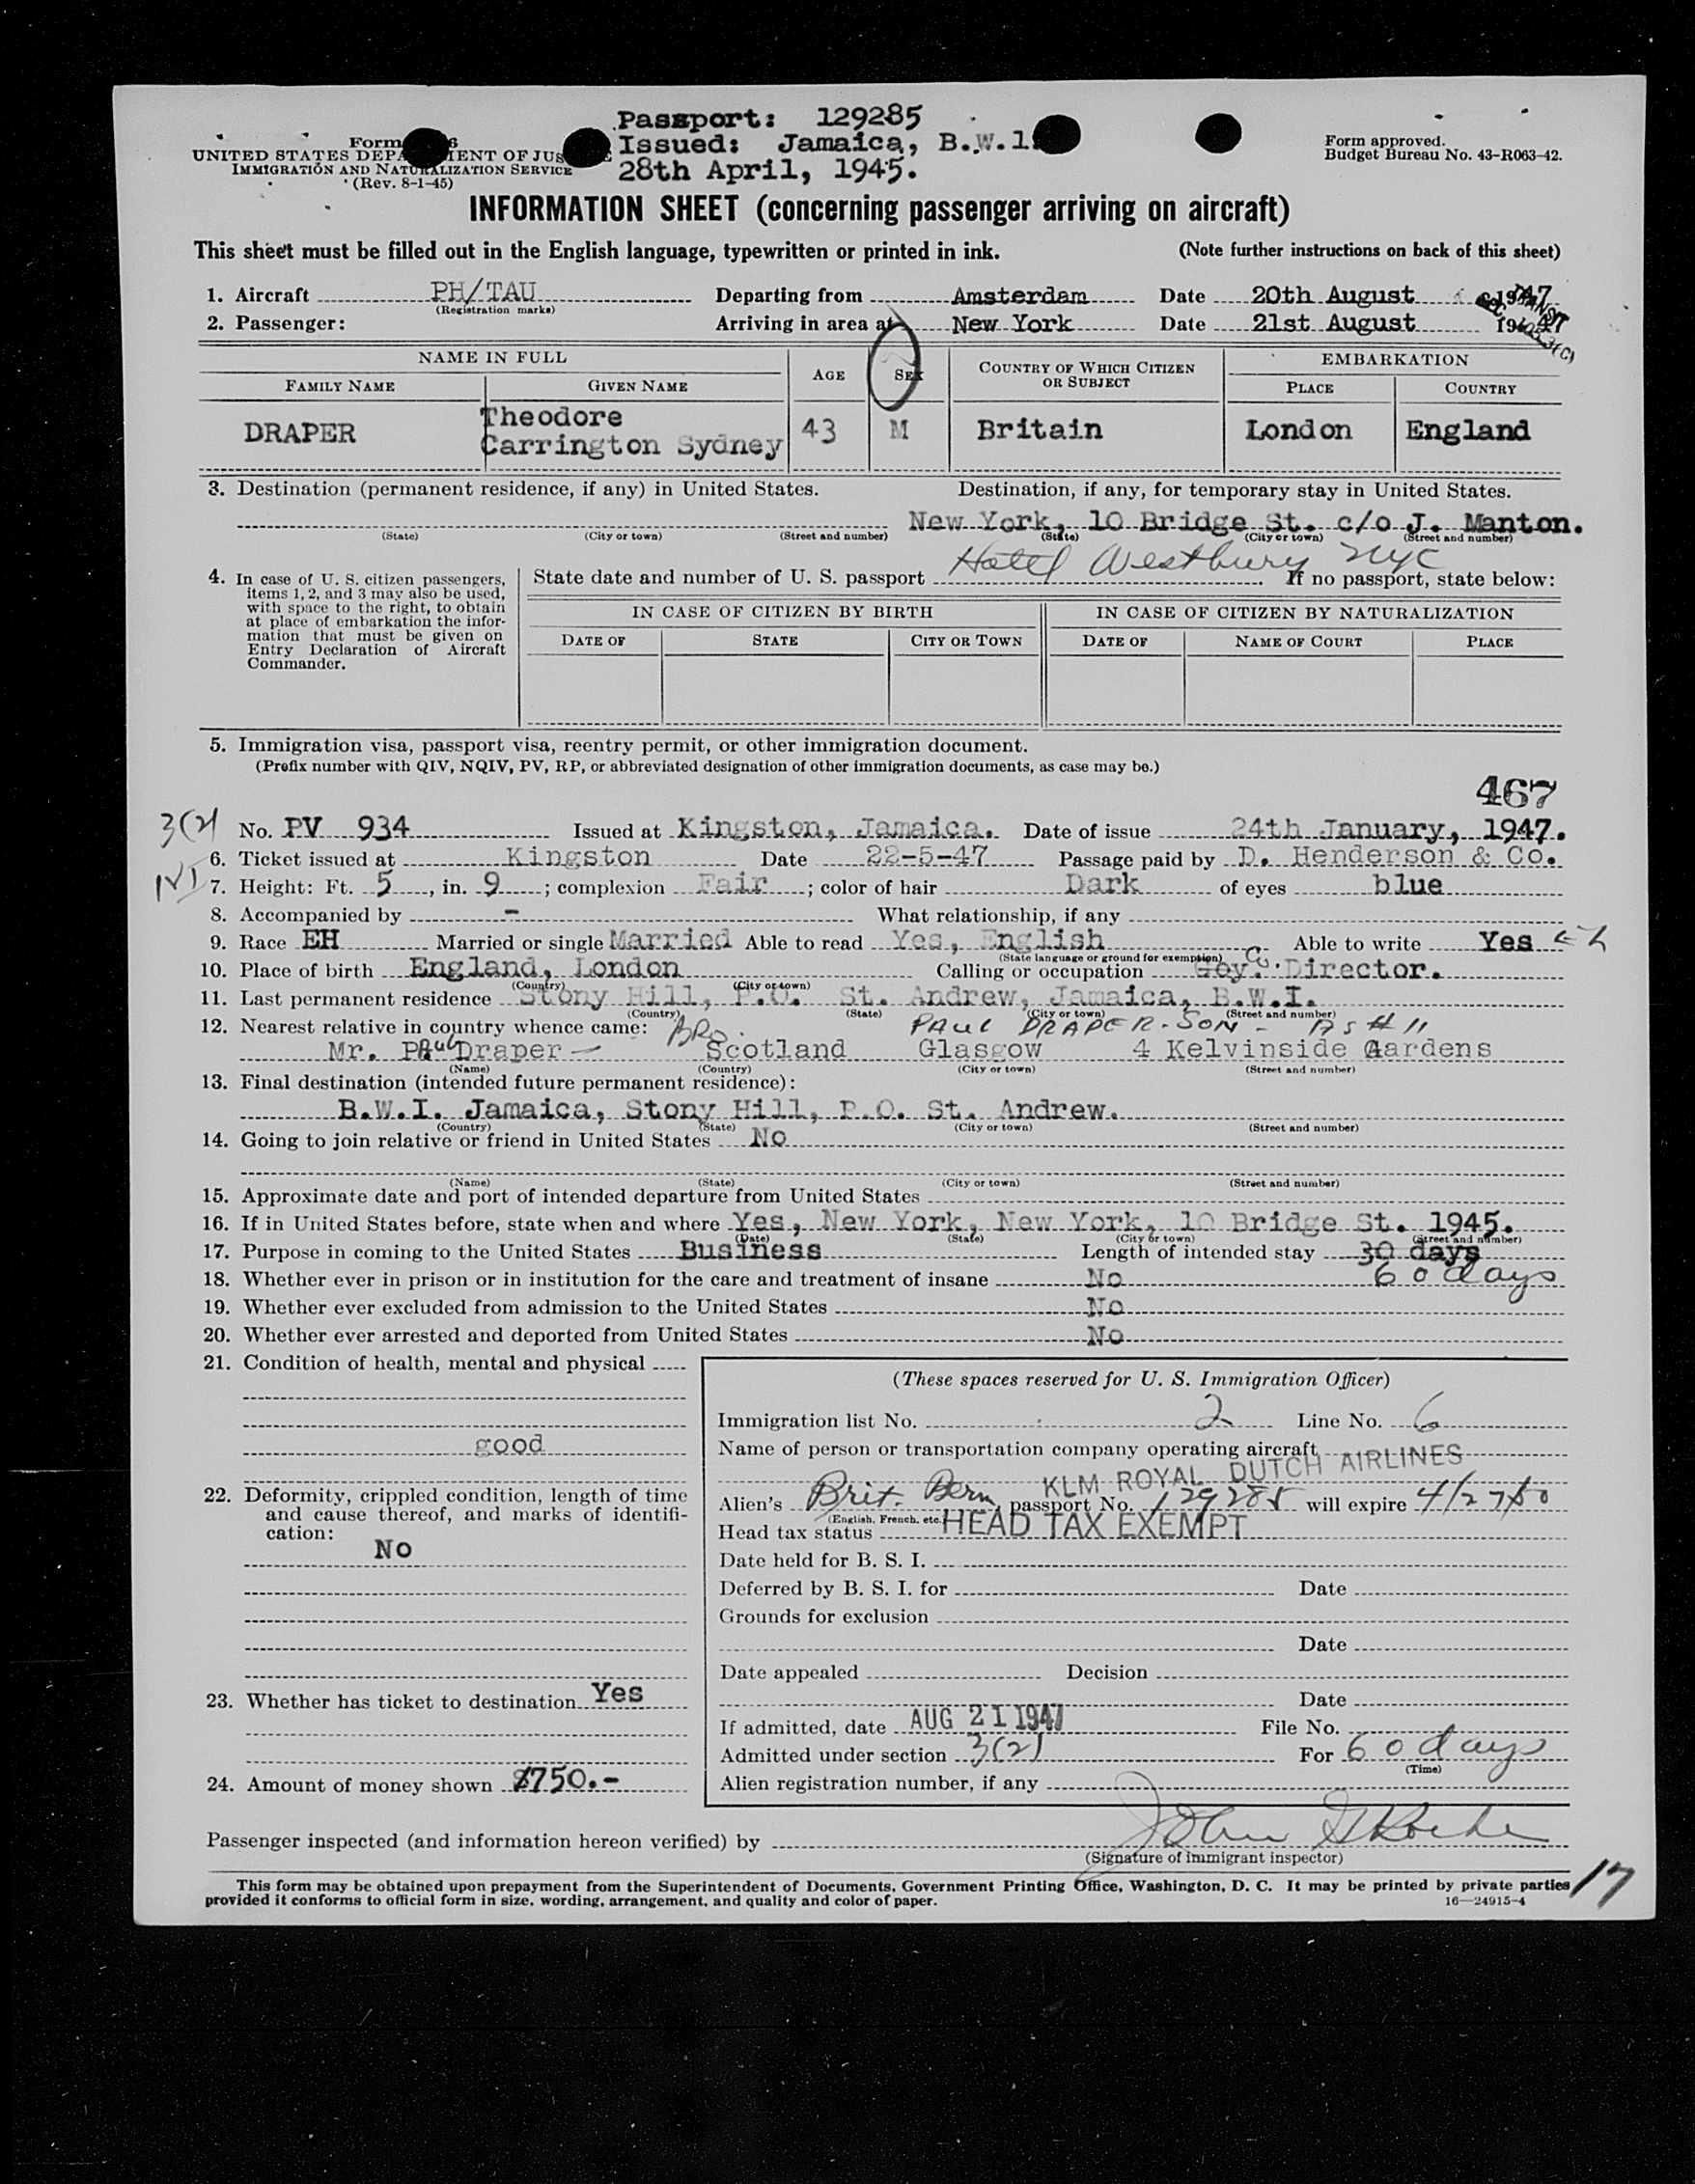 Passport: 129285
Issued: Jamaica, B.W.1.
28th April, 1945.
Form
UNITED STATES DEPARTMENT OF JUSTICE
IMMIGRATION AND NATURALIZATION SERVICE
(Rev. 8-1-45)
Form approved.
Budget Bureau No. 43-R063-42.
INFORMATION SHEET (concerning passenger arriving on aircraft)
This sheet must be filled out in the English language, typewritten or printed in ink. (Note further instructions on back of this sheet)
1. Aircraft PH/TAU Departing from Amsterdam Date 20th August 1947
(Registration marks)
2. Passenger: Arriving in area at New York Date 21st August 1947
NAME IN FULL AGE SEX COUNTRY OF WHICH CITIZEN OR SUBJECT EMBARKATION
FAMILY NAME GIVEN NAME PLACE COUNTRY
DRAPER Theodore Carrington Sydney 43 M Britain London England
3. Destination (permanent residence, if any) in United States. Destination, if any, for temporary stay in United States.
New York, 10 Bridge St. c/o J. Manton.
(State) (City or town) (Street and number) (State) (City or town) (Street and number)
Hotel Westbury NYC
4. In case of U. S. citizen passengers, items 1, 2, and 3 may also be used, with space to the right, to obtain at place of embarkation the information that must be given on Entry Declaration of Aircraft Commander.
State date and number of U. S. passport If no passport, state below:
IN CASE OF CITIZEN BY BIRTH IN CASE OF CITIZEN BY NATURALIZATION
DATE OF STATE CITY OR TOWN DATE OF NAME OF COURT PLACE
5. Immigration visa, passport visa, reentry permit, or other immigration document.
(Prefix number with QIV, NQIV, PV, RP, or abbreviated designation of other immigration documents, as case may be.)
467
3(2) No. PV 934 Issued at Kingston, Jamaica. Date of issue 24th January, 1947.
6. Ticket issued at Kingston Date 22-5-47 Passage paid by D. Henderson & Co.
7. Height: Ft. 5, in. 9; complexion Fair; color of hair Dark of eyes blue
8. Accompanied by - What relationship, if any
9. Race EH Married or single Married Able to read Yes, English Able to write Yes
(State language or ground for exemption)
10. Place of birth England, London Calling or occupation Goy. Director.
(Country) (City or town)
11. Last permanent residence Stony Hill, P.O. St. Andrew, Jamaica, B.W.I.
(Country) (State) (City or town) (Street and number)
12. Nearest relative in country whence came: BRO. PAUL DRAPER - SON - AS # 11
Mr. Paul Draper Scotland Glasgow 4 Kelvinside Gardens
(Name) (Country) (City or town) (Street and number)
13. Final destination (intended future permanent residence):
B.W.I. Jamaica, Stony Hill, P.O. St. Andrew.
(Country) (State) (City or town) (Street and number)
14. Going to join relative or friend in United States No
(Name) (State) (City or town) (Street and number)
15. Approximate date and port of intended departure from United States
16. If in United States before, state when and where Yes, New York, New York, 10 Bridge St. 1945.
(Date) (State) (City or town) (Street and number)
17. Purpose in coming to the United States Business Length of intended stay 30 days
60 days
18. Whether ever in prison or in institution for the care and treatment of insane No
19. Whether ever excluded from admission to the United States No
20. Whether ever arrested and deported from United States No
21. Condition of health, mental and physical
good
22. Deformity, crippled condition, length of time and cause thereof, and marks of identification:
No
23. Whether has ticket to destination Yes
24. Amount of money shown $750.-
(These spaces reserved for U. S. Immigration Officer)
Immigration list No. 2 Line No. 6
Name of person or transportation company operating aircraft
KLM ROYAL DUTCH AIRLINES
Alien's Brit. passport No. 129285 will expire 4/27/50
(English, French, etc.)
Head tax status HEAD TAX EXEMPT
Date held for B. S. I.
Deferred by B. S. I. for Date
Grounds for exclusion
Date
Date appealed Decision
Date
If admitted, date AUG 21 1947 File No.
Admitted under section 3(2) For 60 days
(Time)
Alien registration number, if any
Passenger inspected (and information hereon verified) by John
(Signature of immigrant inspector)
This form may be obtained upon prepayment from the Superintendent of Documents, Government Printing Office, Washington, D. C. It may be printed by private parties
provided it conforms to official form in size, wording, arrangement, and quality and color of paper. 16—24915-4
17